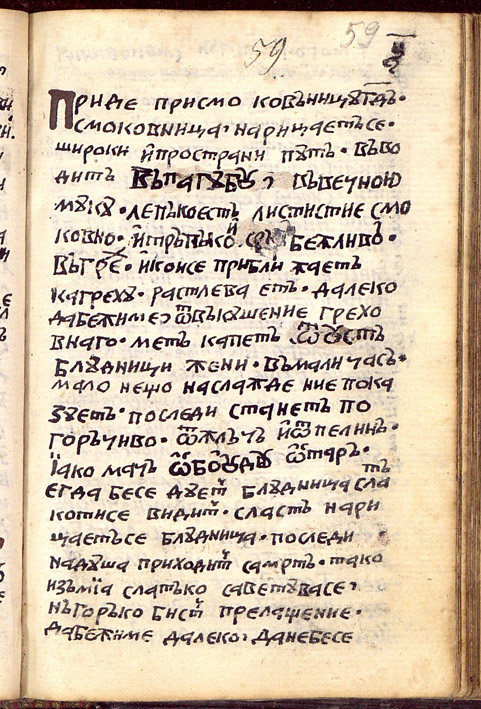 59 59
Приде присмо ковъницꙋ гдъ·
смоковница· нарицаетъсе·
широки и҆пространи пꙋть· въво
дить въпагꙋбꙋ, въвечною
мꙋкꙋ· лепъкоесть листистие смо
ковно· бежливо·
въгре҆· и҆коисе приближаеть
кагрехꙋ· растлева еть· далеко
дабежиме, ѿвкꙋшение грехо
внаго· меть капеть ѿꙋсть
блꙋдници жени· въмали часъ·
мало нещо наслажде ние пока
зꙋеть· последи станеть по
горъчиво· ѿжлъчь и҆ѿпелинь·
ꙗ҆ко мачь ѡ҆боꙋдꙋ ѿтарь·
егда бесе дꙋеть блꙋдница сла
котисе видить· сласть нари
цаетьсе блꙋдница· последи
надꙋша приходить самрть· тако
изъмїа слатько саветꙋвасе,
нъгорько бисть прелащение·
дабежиме далеко, данебесе